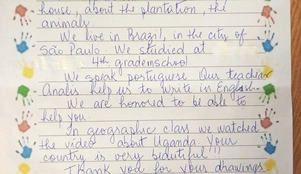 house, about the plantation, the
animals.
We live in Brazil, in the city of
São Paulo. We studied at
4th grade school
We speak postuguese. Our teacher
Analis help us to write in English.
We are honored to be able to
help you.
In geographic class we watched
the video about Uganda. Your
country is very beautiful!!!
Thank you for your drawings